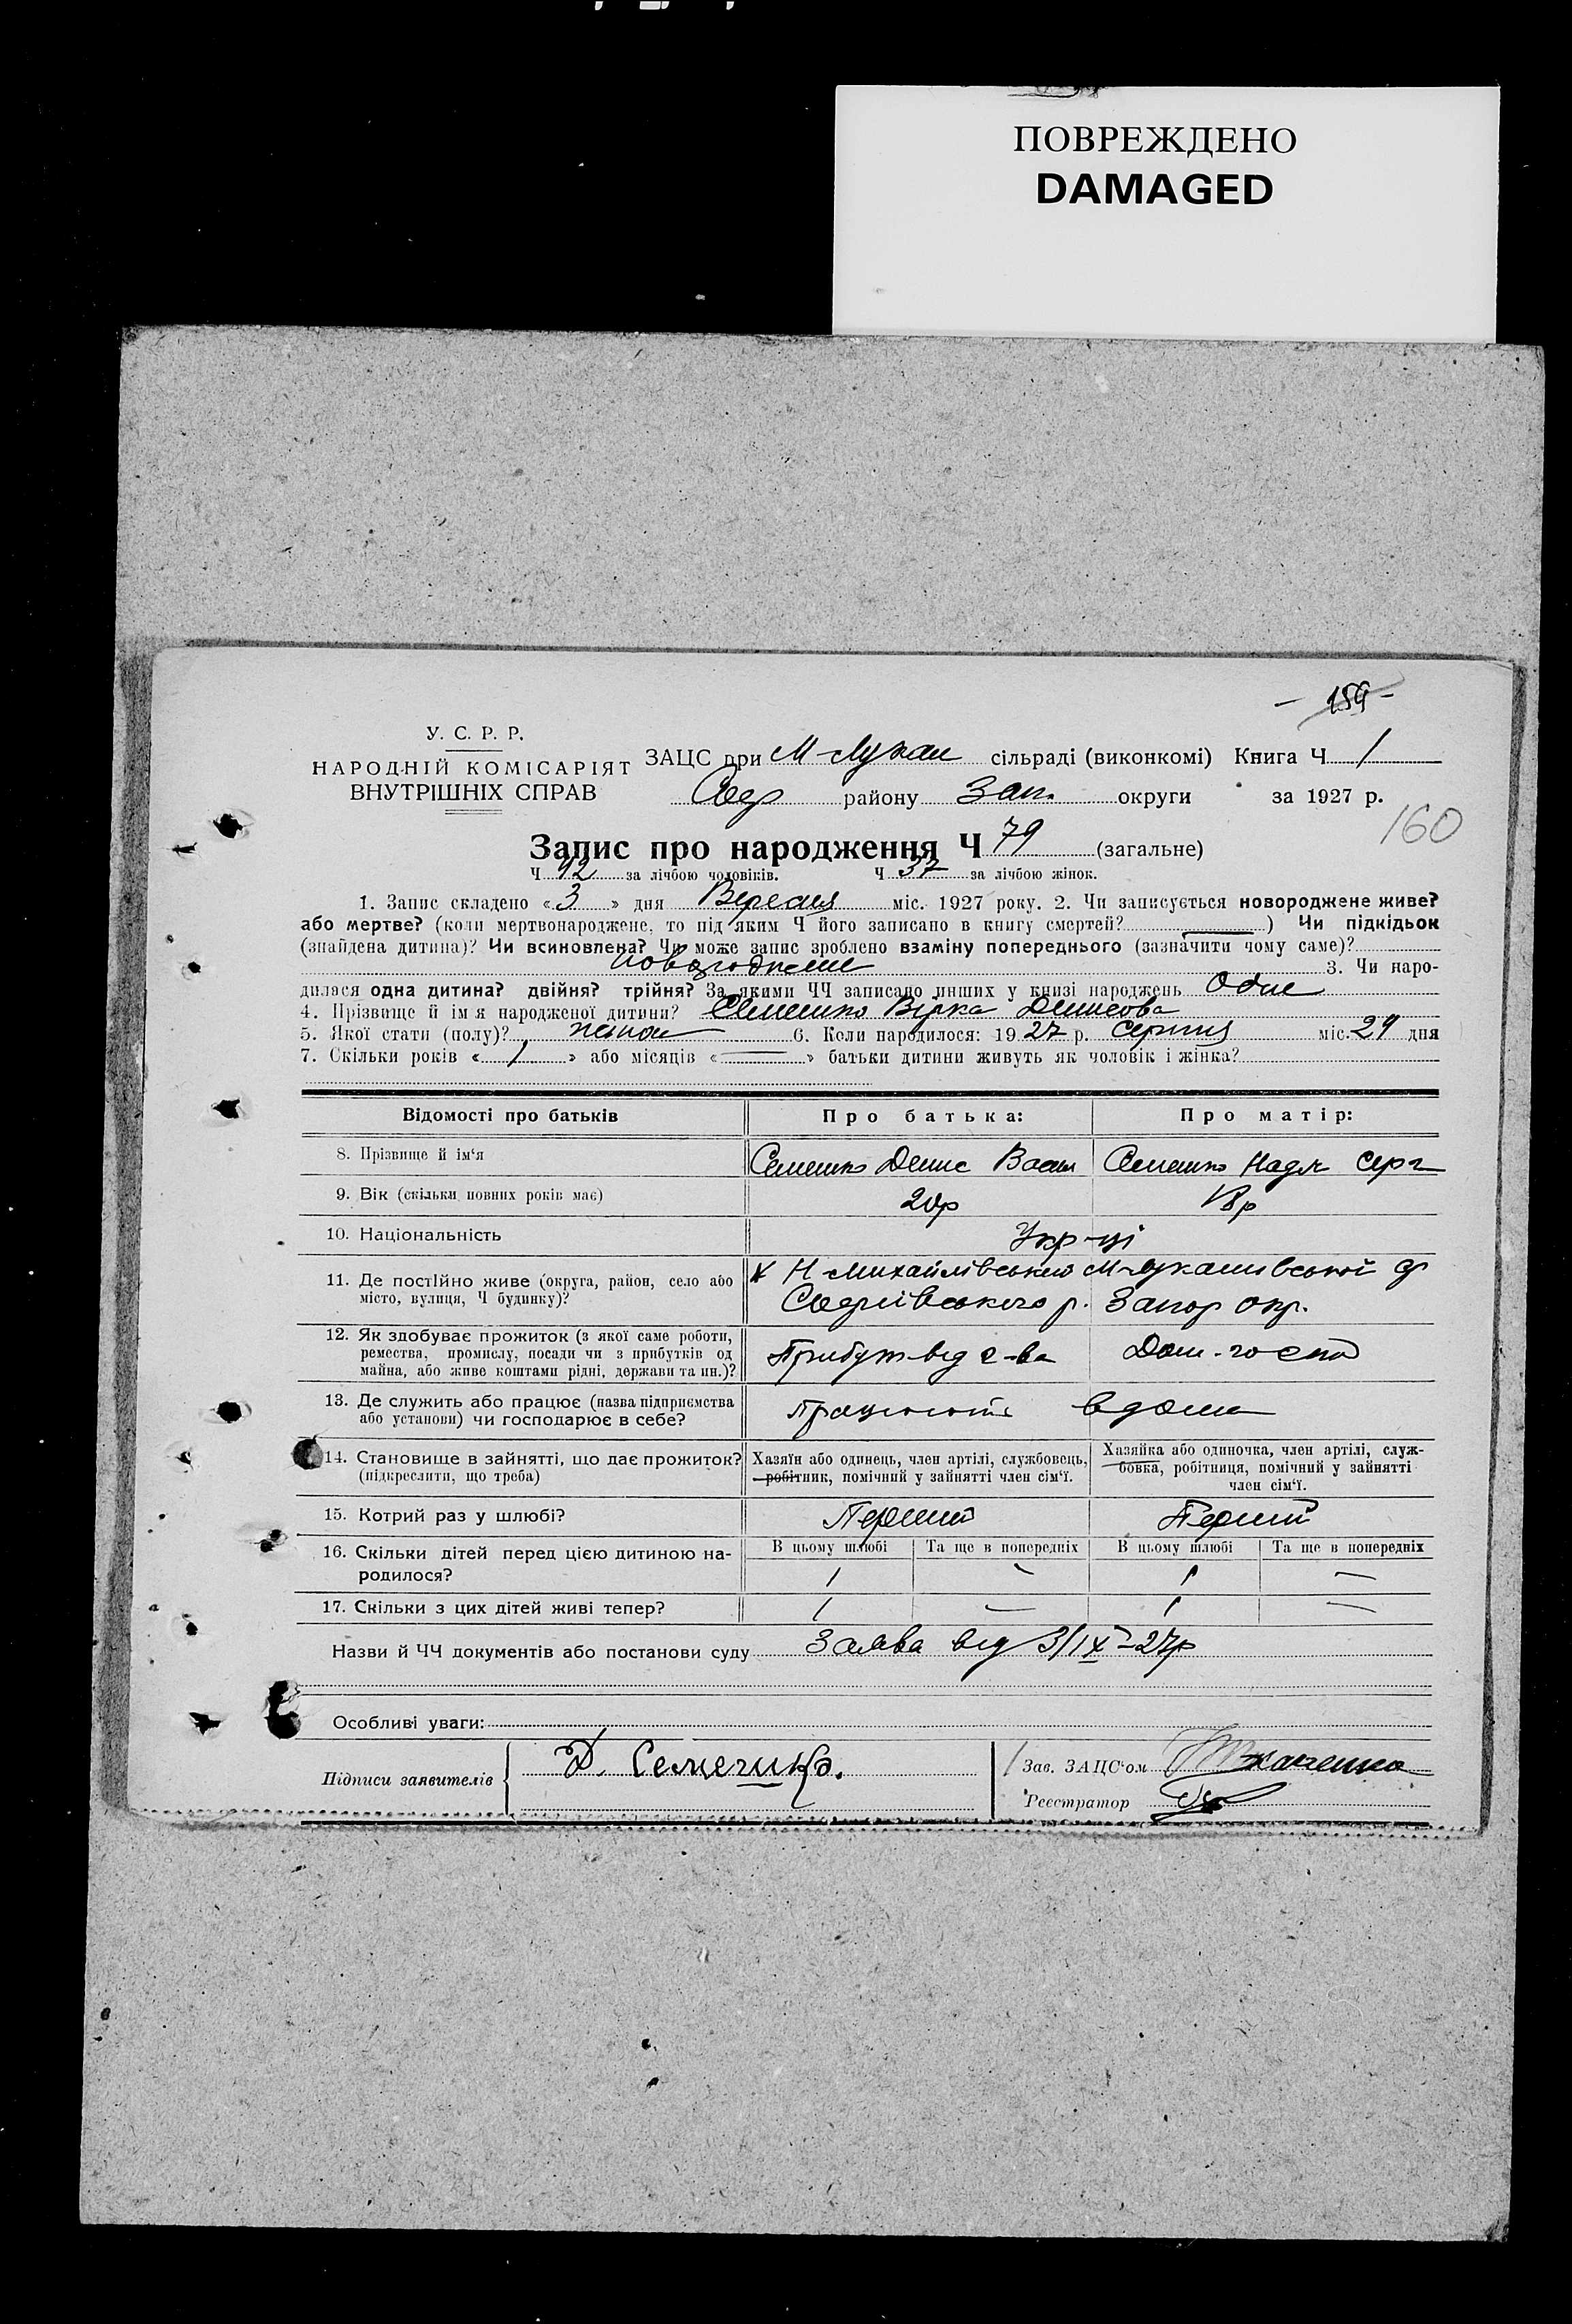 ПОВРЕЖДЕНО
DAMAGED
- 159 -
У. С. Р. Р.
НАРОДНІЙ КОМІСАРІЯТ
ВНУТРІШНІХ СПРАВ
ЗАЦС при М-Лукаш сільраді (виконкомі) Книга Ч 1
Софр району Зап. округи за 1927 р.
160
Запис про народження Ч 79 (загальне)
Ч 42 за лічбою чоловіків. Ч 37 за лічбою жінок.
1. Запис складено « 3 » дня Вересня міс. 1927 року. 2. Чи записується новороджене живе?
або мертве? (коли мертвонароджене, то під яким Ч його записано в книгу смертей? ) Чи підкідьок
(знайдена дитина)? Чи всиновлена? Чи може запис зроблено взаміну попереднього (зазначити чому саме)?
новородж 3. Чи наро-
дилася одна дитина? двійня? трійня? За якими ЧЧ записано инших у книзі народжень Одне
4. Прізвище й імя народженої дитини? Семешко Вірка Денисова
5. Якої стати (полу)? жіноч 6. Коли народилося: 1927 р. серпня міс. 29 дня
7. Скільки років « 1 » або місяців « — » батьки дитини живуть як чоловік і жінка?
Відомості про батьків Про батька: Про матір:
8. Прізвище й ім‘я Семешко Денис Васил Семешко Надя Серг
9. Вік (скільки повних років має) 20р 18р
10. Національність Укр-ці
11. Де постійно живе (округа, район, село або
місто, вулиця, Ч будинку)?
х Н-Михайлівського М-Лукашівської ср
Софіївського р. Запор окр.
12. Як здобуває прожиток (з якої саме роботи,
ремества, промислу, посади чи з прибутків од
майна, або живе коштами рідні, держави та ин.)?
Прибут від г-ва Дом-госпо
13. Де служить або працює (назва підприємства
або установи) чи господарює в себе?
Працюють вдома
14. Становище в зайнятті, що дає прожиток?
(підкреслити, що треба)
Хазяїн або одинець, член артілі, службовець,
робітник, помічний у зайнятті член сім‘ї.
Хазяйка або одиночка, член артілі, служ-
бовка, робітниця, помічний у зайнятті
член сім‘ї.
15. Котрий раз у шлюбі? Перший Перший
16. Скільки дітей перед цією дитиною на-
родилося?
В цьому шлюбі Та ще в попередніх В цьому шлюбі Та ще в попередніх
1 — 1 —
17. Скільки з цих дітей живі тепер? 1 — 1 —
Назви й ЧЧ документів або постанови суду Заява від 3/IX-27р
Особливі уваги:
Підписи заявителів Д. Семешко.
Зав. ЗАЦС‘ом Ткаченко
Реєстратор